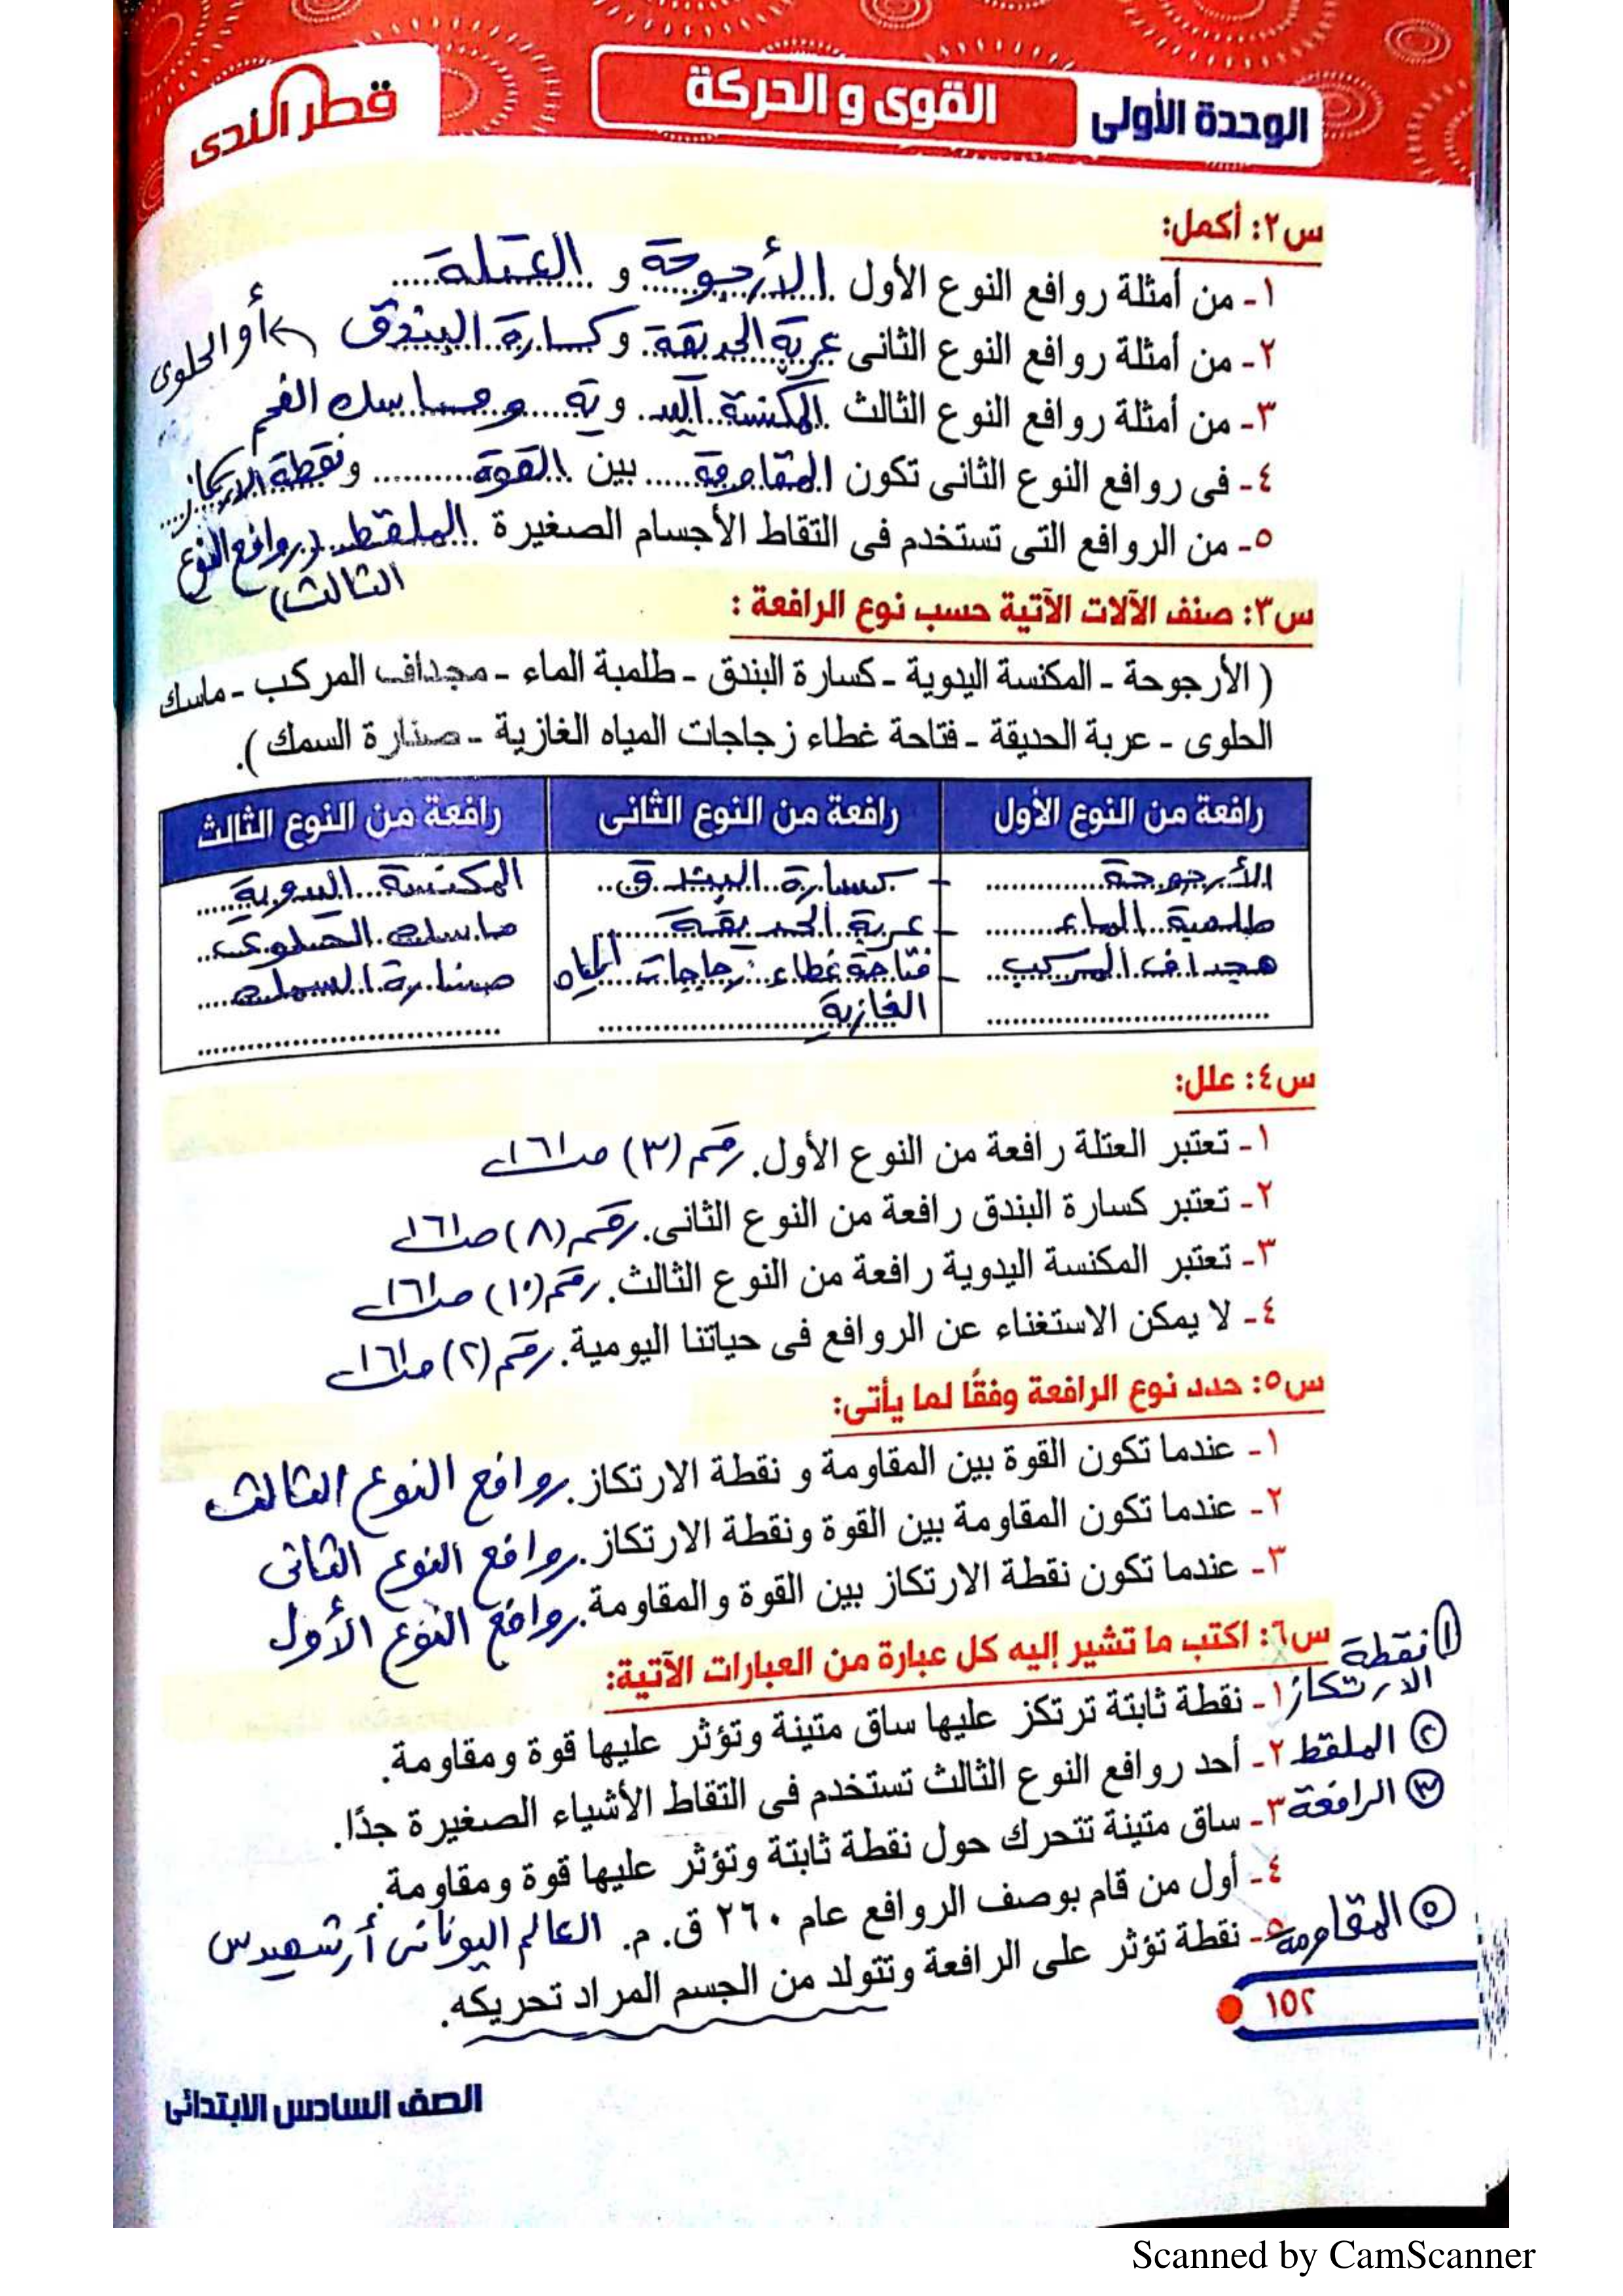 الوحدة الأولى القوى و الحركة قطر الندى
س٢: أكمل:
١- من أمثلة روافع النوع الأول الأرجوحة و العتلة
٢- من أمثلة روافع النوع الثانى عربة الحديقة و كسارة البندق أو الحلوى
٣- من أمثلة روافع النوع الثالث المكنسة اليدوية و ماسك الفحم
٤- فى روافع النوع الثانى تكون المقاومة بين القوة و نقطة الارتكاز
٥- من الروافع التى تستخدم فى التقاط الأجسام الصغيرة الملقط (روافع النوع
الثالث)
س٣: صنف الآلات الآتية حسب نوع الرافعة :
( الأرجوحة - المكنسة اليدوية - كسارة البندق - طلمبة الماء - مجداف المركب - ماسك
الحلوى - عربة الحديقة - فتاحة غطاء زجاجات المياه الغازية - صنارة السمك ).
رافعة من النوع الأول رافعة من النوع الثانى رافعة من النوع الثالث
الأرجوحة - كسارة البندق المكنسة اليدوية
طلمبة الماء - عربة الحديقة ماسك الحلوى
مجداف المركب - فتاحة غطاء زجاجات المياه صنارة السمك
الغازية
س٤: علل:
١- تعتبر العتلة رافعة من النوع الأول. رقم (٣) صـ ١٦١
٢- تعتبر كسارة البندق رافعة من النوع الثانى. رقم (٨) صـ ١٦١
٣- تعتبر المكنسة اليدوية رافعة من النوع الثالث. رقم (١٠) صـ ١٦١
٤- لا يمكن الاستغناء عن الروافع فى حياتنا اليومية. رقم (٢) صـ ١٦١
س٥: حدد نوع الرافعة وفقًا لما يأتى:
١- عندما تكون القوة بين المقاومة و نقطة الارتكاز. روافع النوع الثالث
٢- عندما تكون المقاومة بين القوة ونقطة الارتكاز. روافع النوع الثانى
٣- عندما تكون نقطة الارتكاز بين القوة والمقاومة. روافع النوع الأول
س٦: اكتب ما تشير إليه كل عبارة من العبارات الآتية:
① نقطة الارتكاز
١- نقطة ثابتة ترتكز عليها ساق متينة وتؤثر عليها قوة ومقاومة.
② الملقط ٢- أحد روافع النوع الثالث تستخدم فى التقاط الأشياء الصغيرة جدًا.
③ الرافعة ٣- ساق متينة تتحرك حول نقطة ثابتة وتؤثر عليها قوة ومقاومة.
٤- أول من قام بوصف الروافع عام ٢٦٠ ق. م. العالم اليونانى أرشميدس
⑤ المقاومة ٥- نقطة تؤثر على الرافعة وتتولد من الجسم المراد تحريكه.
١٥٢
الصف السادس الابتدائى
Scanned by CamScanner